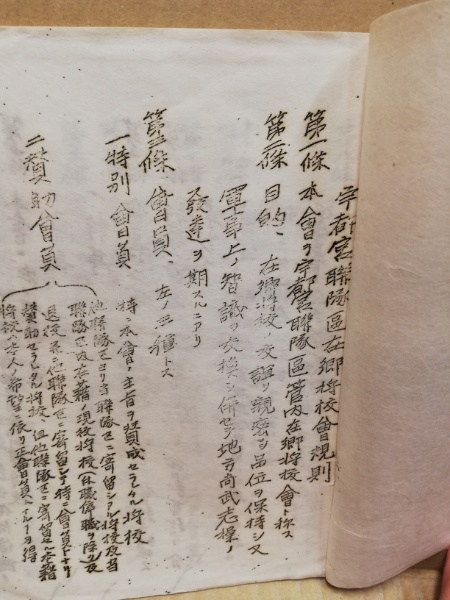 宇都宮聯隊區在郷将校會規則
第一條 本會ヲ宇都宮聯隊區管内在郷将校會ト称ス
第二條 目的ハ在郷将校ノ交誼ヲ親密ニシ品位ヲ保持シ又
軍事上ノ智識ヲ交換シ併セテ地方尚武志操ノ
發達ヲ期スルニアリ
第三條 會員ハ左ノ三種トス
一 特別會員
特ニ本會ノ主旨ヲ賛成セラレタル将校
他聯隊區ヨリ當聯隊區ニ寄留シアル将校及當
聯隊區内在籍ノ現役将校休職停職ヲ除ク及
二 賛助會員
退役ニシテ他聯隊區ニ寄留シ特ニ會員トナリ
賛助セラレタル将校、但他聯隊區ニ寄留セル在籍
将校ハ本人ノ希望ニ依リ正會員トナルヲ得